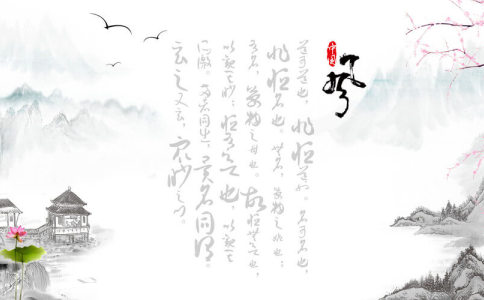 中国
风
道可道也，非恒道也。名可名也，
非恒名也。无名，萬物之始也；
有名，萬物之母也。故恒无欲也，
以观其妙；恒有欲也，以观其
所徼。两者同出，异名同谓。
玄之又玄，众妙之门。